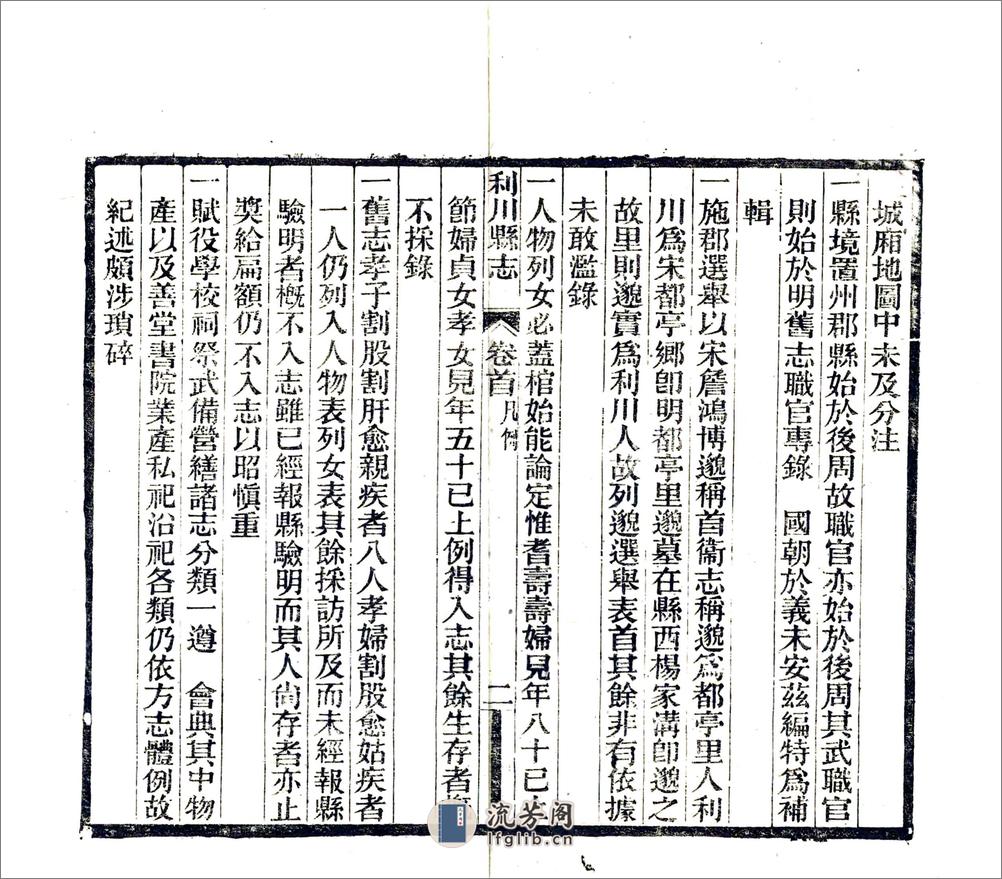 城廂地圖中未及分注
一縣境置州郡縣始於後周故職官亦始於後周其武職官
則始於明舊志職官專錄　國朝於義未安茲編特爲補
輯
一施郡選舉以宋詹鴻博邈稱首衞志稱邈爲都亭里人利
川爲宋都亭鄉卽明都亭里邈墓在縣西楊家溝卽邈之
故里則邈實爲利川人故列邈選舉表首其餘非有依據
未敢濫錄
利川縣志　卷首凡例　二
一人物列女必蓋棺始能論定惟耆壽壽婦見年八十已
節婦貞女孝女見年五十已上例得入志其餘生存者
不採錄
一舊志孝子割股割肝愈親疾者八人孝婦割股愈姑疾者
一人仍列入人物表列女表其餘採訪所及而未經報縣
驗明者槪不入志雖已經報縣驗明而其人尙存者亦止
獎給扁額仍不入志以昭愼重
一賦役學校祠祭武備營繕諸志分類一遵　會典其中物
產以及善堂書院業產私祀治祀各類仍依方志體例故
紀述頗涉瑣碎
流芳阁
lfglib.cn